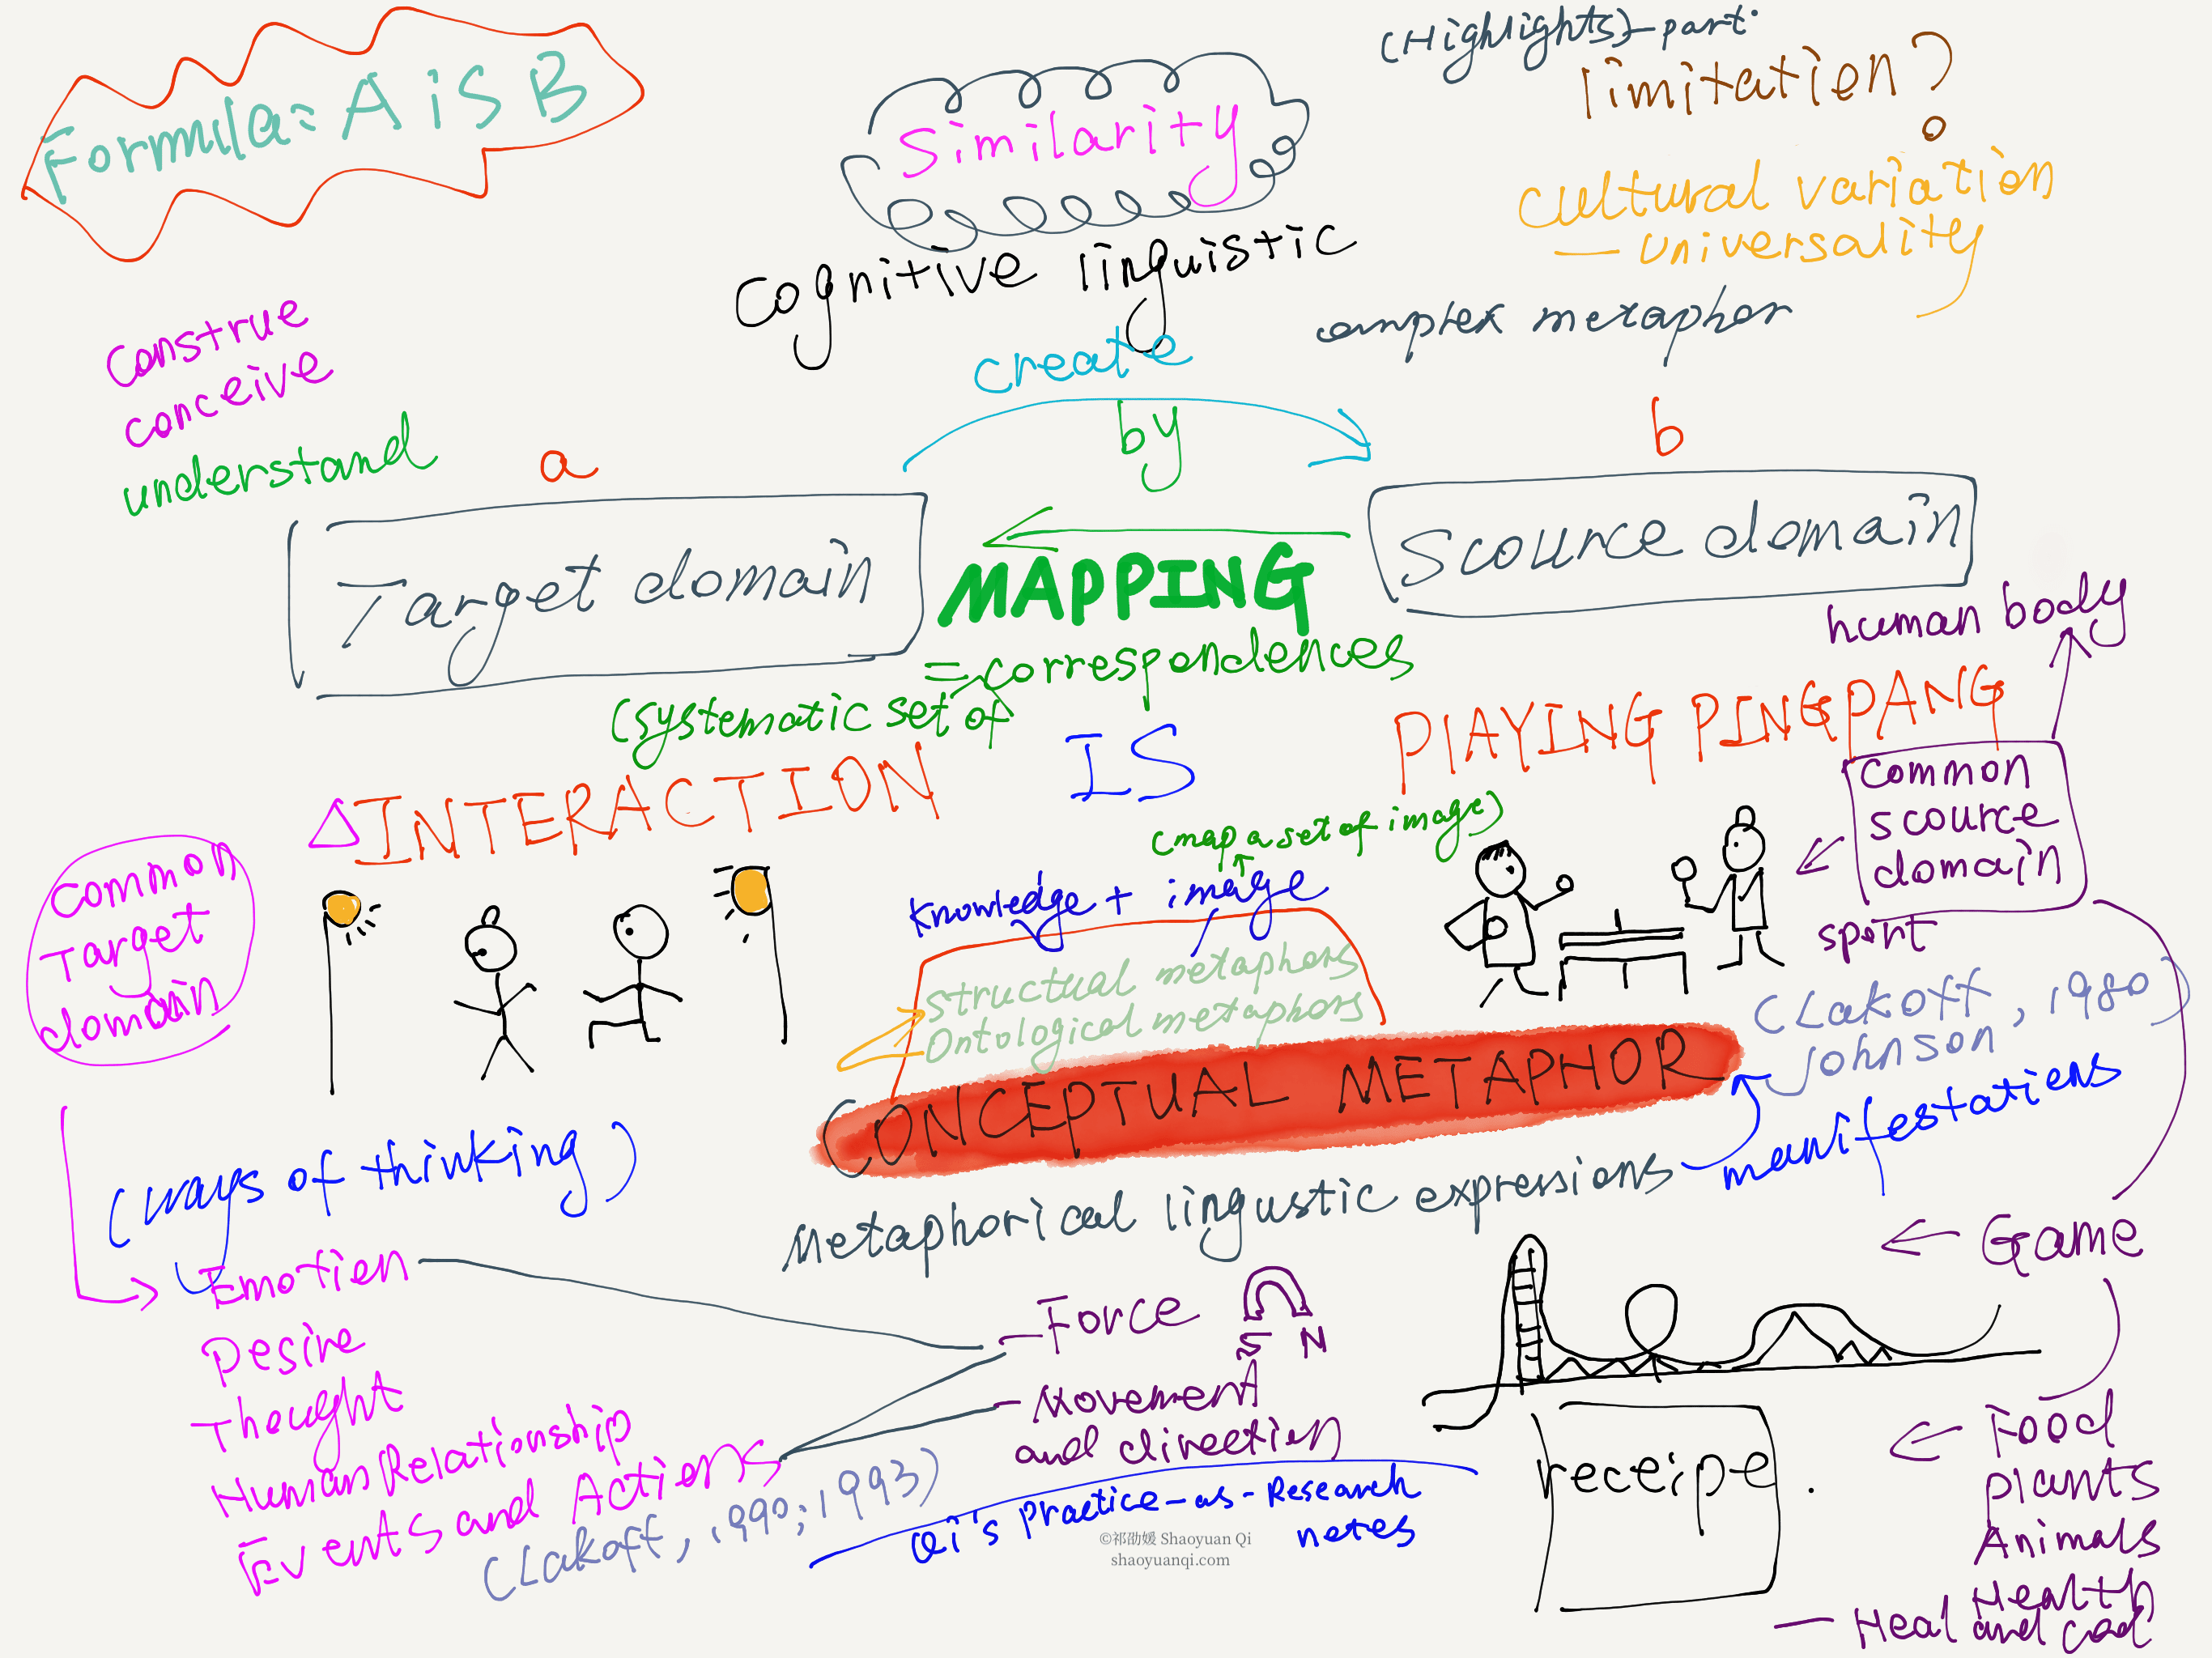 Formula: A is B
Similarity
Cognitive linguistic
(Highlights)-part.
limitation?
cultural variation
— universality
complex metaphor
construe
conceive
understand
create
by
a
b
Target domain
Scource domain
MAPPING
= correspondences
(systematic set of
human body
△ INTERACTION
IS
PLAYING PINGPANG
common
scource
domain
sport
Common
Target
domain
(map a set of image)
knowledge + image
structual metaphors
Ontological metaphors
CONCEPTUAL METAPHOR
(Lakoff, 1980)
Johnson
manifestations
Metaphorical lingustic expressions
(ways of thinking)
Emotion
Desire
Thought
Human Relationship
Events and Actions
(Lakoff, 1990; 1993)
– Force
S N
– Movement
and direction
Game
Food
plants
Animals
Health
— Heal and
receipe.
Qi's Practice-as-Research
notes
©祁邵媛 Shaoyuan Qi
shaoyuanqi.com